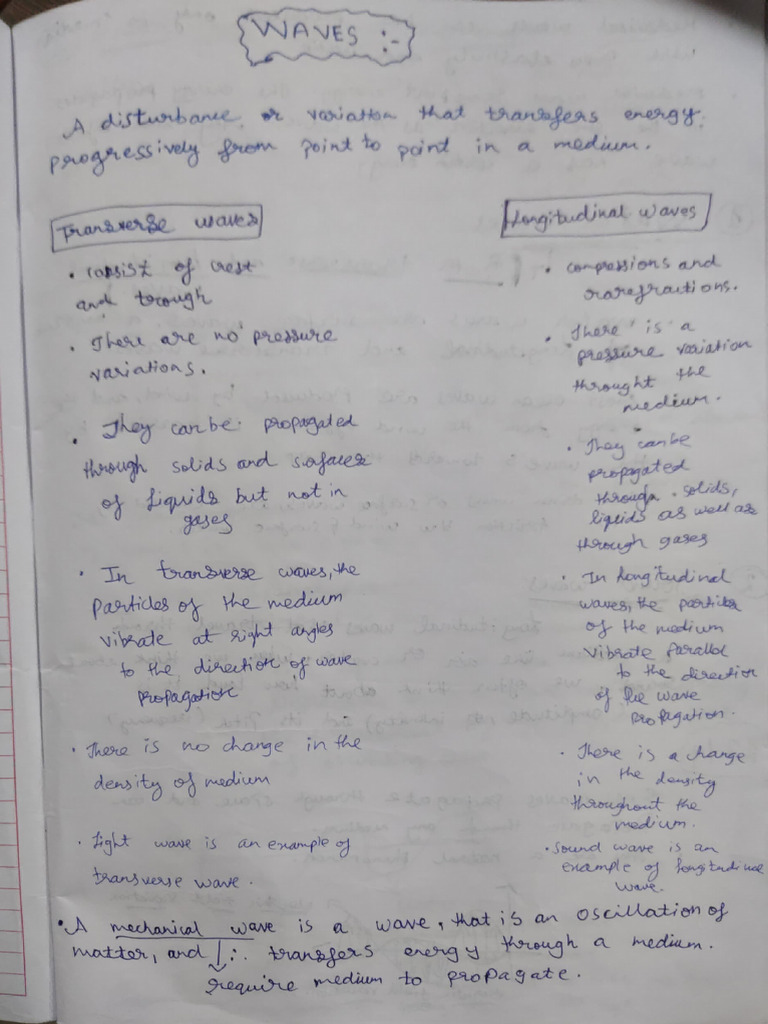 WAVES :-
A disturbance or variation that transfers energy
progressively from point to point in a medium.
Transverse waves
• consist of crest
and trough
• There are no pressure
variations.
• They can be propagated
through solids and surfaces
of liquids but not in
gases
• In transverse waves, the
particles of the medium
vibrate at right angles
to the direction of wave
propagation
• There is no change in the
density of medium
• Light wave is an example of
transverse wave.
Longitudinal waves
• compressions and
rarefractions.
• There is a
pressure variation
throught the
medium.
• They can be
propagated
through solids,
liquids as well as
through gases
• In longitudinal
waves, the particles
of the medium
vibrate parallel
to the direction
of the wave
propagation.
• There is a change
in the density
throughout the
medium.
• Sound wave is an
example of longitudinal
wave.
• A mechanical wave is a wave, that is an oscillation of
matter, and ∴ transfers energy through a medium.
require medium to propagate.